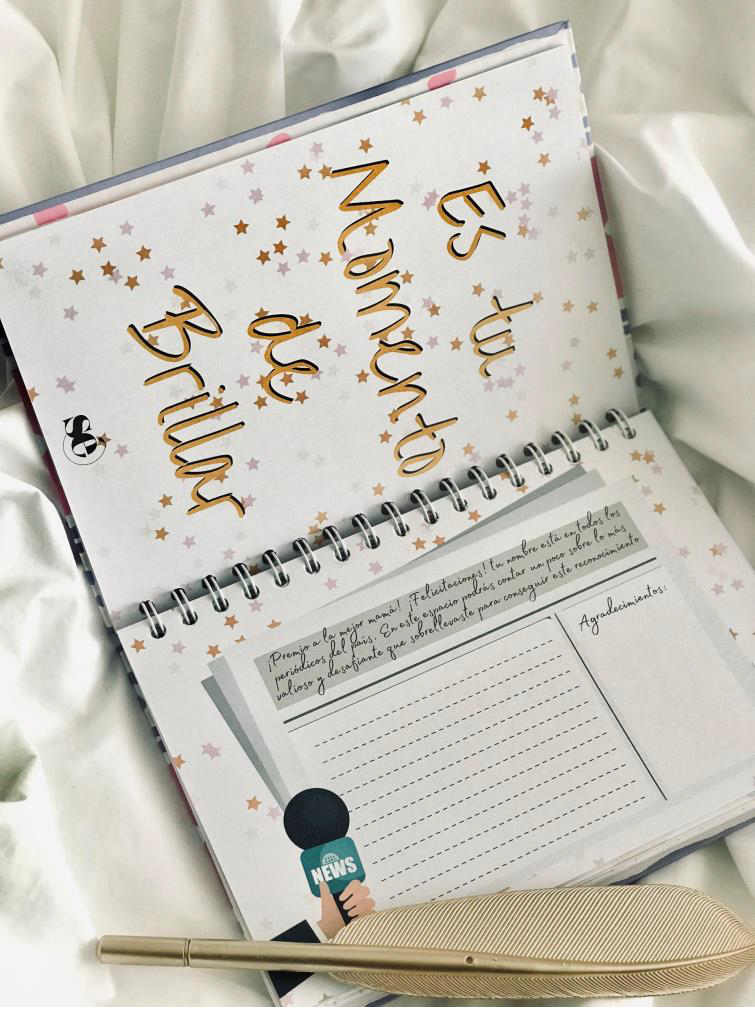 Es tu
Momento
de
Brillar
SC
¡Premio a la mejor mamá! ¡Felicitaciones! tu nombre está en todos los
periódicos del país. En este espacio podrás contar un poco sobre lo más
valioso y desafiante que sobrellevaste para conseguir este reconocimiento
Agradecimientos:
NEWS